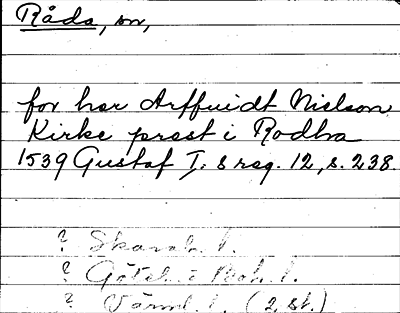 Råda, sn,
for her Arffuidt Nielson
Kirke prest i Rodha
1539 Gustaf I:s reg. 12, s. 238.
? Skarab. l.
? Göteb. o Boh. l.
? Värml. l. (2 st.)